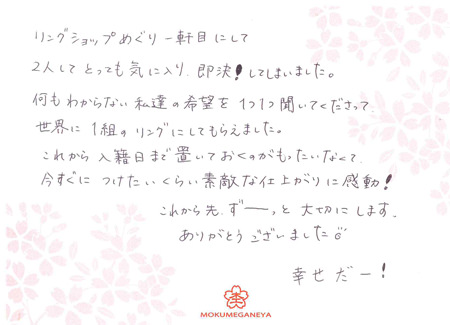 リングショップめぐり一軒目にして
2人して とっても気に入り、即決!してしまいました。
何もわからない 私達の希望を 1つ1つ聞いてくださって
世界に 1組のリングにしてもらえました。
これから 入籍日まで置いておくのがもったいなくて
今すぐに つけたいくらい素敵な仕上がりに感動!
これから先、ずーーっと 大切にします。
ありがとうございました
幸せだー!
MOKUMEGANEYA